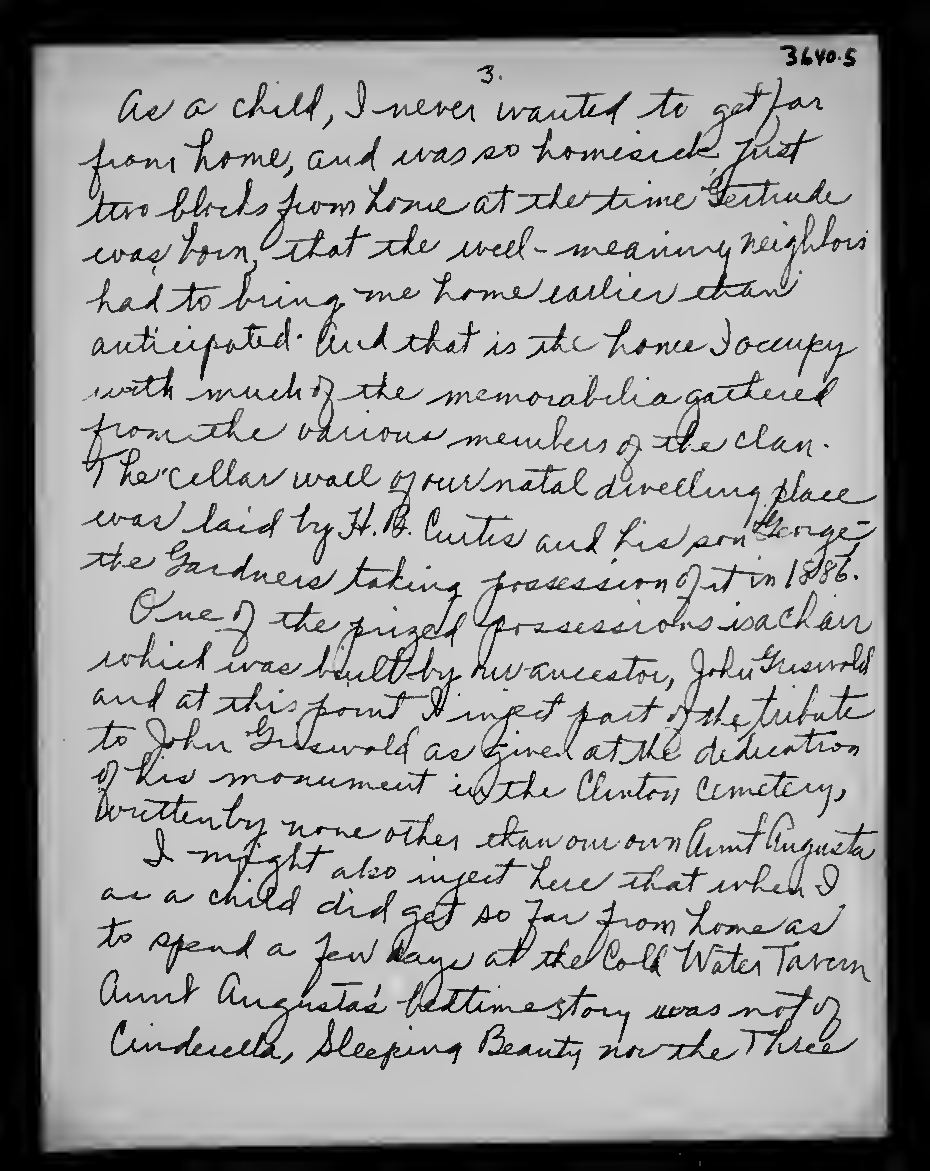 3640.5
3.
As a child, I never wanted to get far
from home, and was so homesick just
two blocks from home at the time Gertrude
was born, that the well-meaning neighbors
had to bring me home earlier than
anticipated. And that is the home I occupy
with much of the memorabilia gathered
from the various members of the clan.
The cellar wall of our natal dwelling place
was laid by H. B. Curtis and his son George,
the Gardners taking possession of it in 1886.
One of the prized possessions is a chair
which was built by our ancestor, John Griswold
and at this point I inject part of the tribute
to John Griswold as given at the dedication
of his monument in the Clinton Cemetery,
written by none other than our own Aunt Augusta
I might also inject here that when I
as a child did get so far from home as
to spend a few days at the Cold Water Tavern
Aunt Augusta's bedtime story was not of
Cinderella, Sleeping Beauty nor the Three